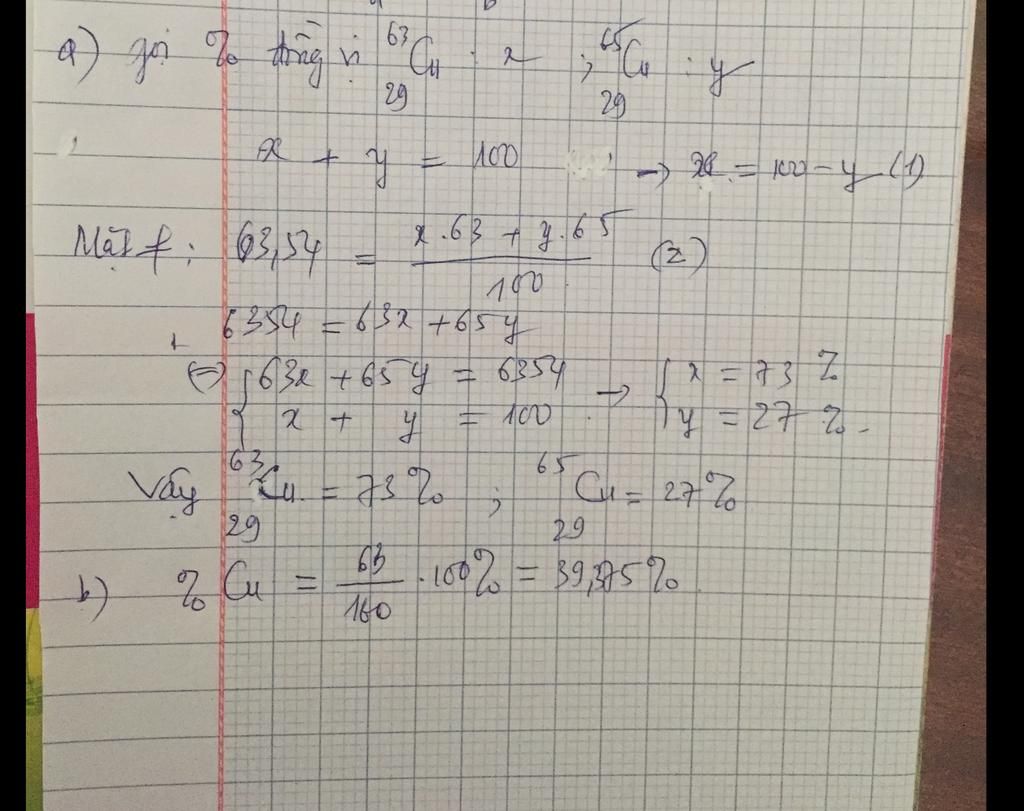 a) gọi % đồng vị ⁶³₂₉Cu : x ; ⁶⁵₂₉Cu : y
x + y = 100 → x = 100 - y (1)
Mặt ≠ : 63,54 = (x.63 + y.65)/100 (2)
6354 = 63x + 65y
(=) { 63x + 65y = 6354 → { x = 73 %
x + y = 100 y = 27 %.
Vậy ⁶³₂₉Cu = 73% ; ⁶⁵₂₉Cu = 27%
b) % Cu = 63/160 . 100% = 39,375%.